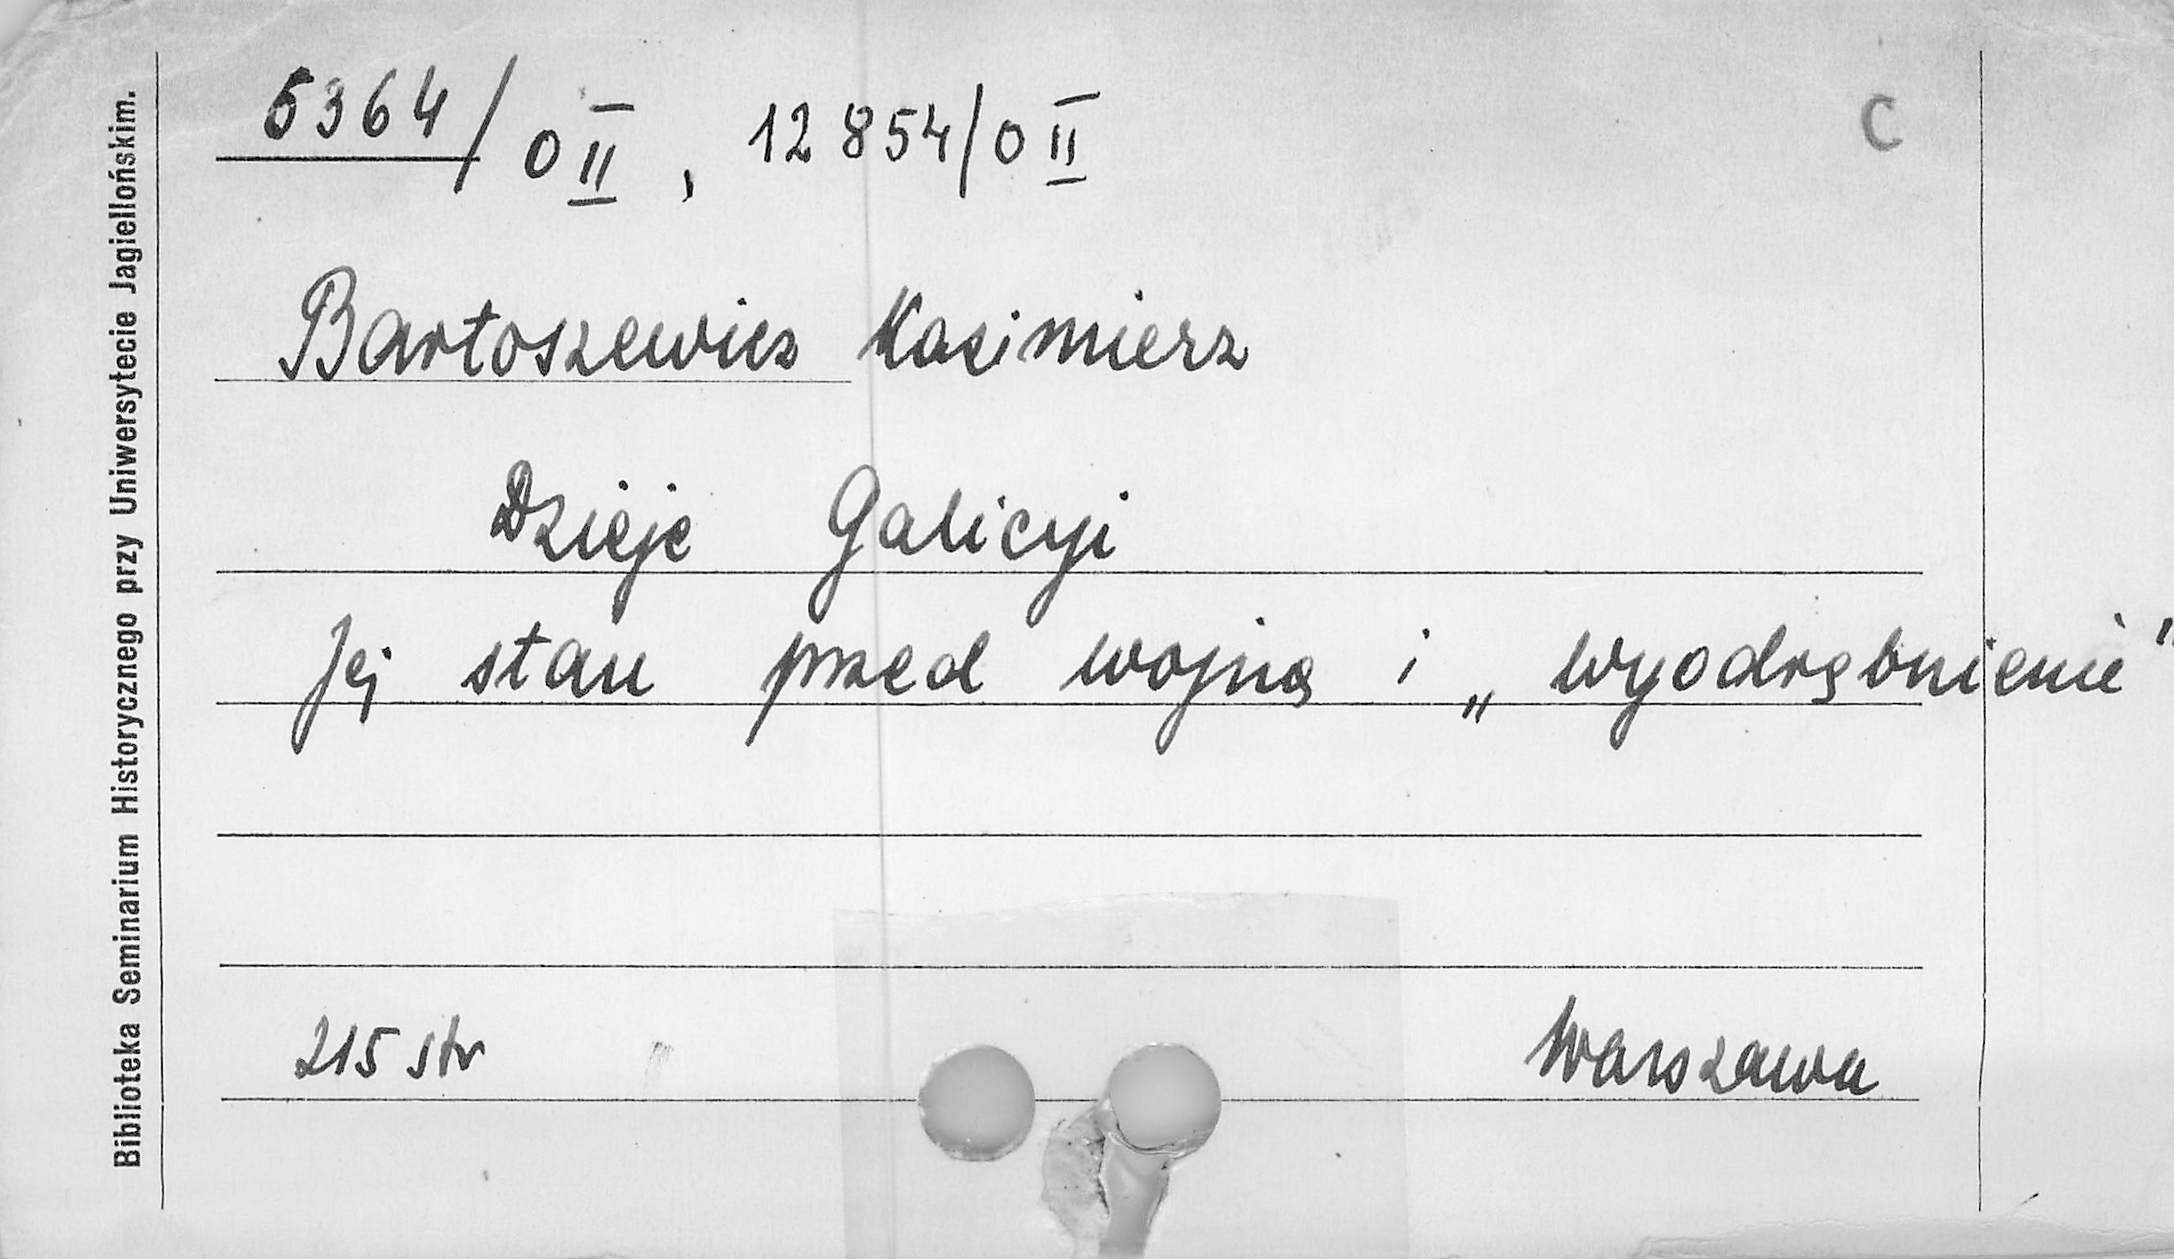 5364/0II, 12854/0II
C
Bartoszewicz Kazimierz
Dzieje Galicyi
Jej stan przed wojną i „wyodrębnienie"
215 str
Warszawa
Biblioteka Seminarium Historycznego przy Uniwersytecie Jagiellońskim.